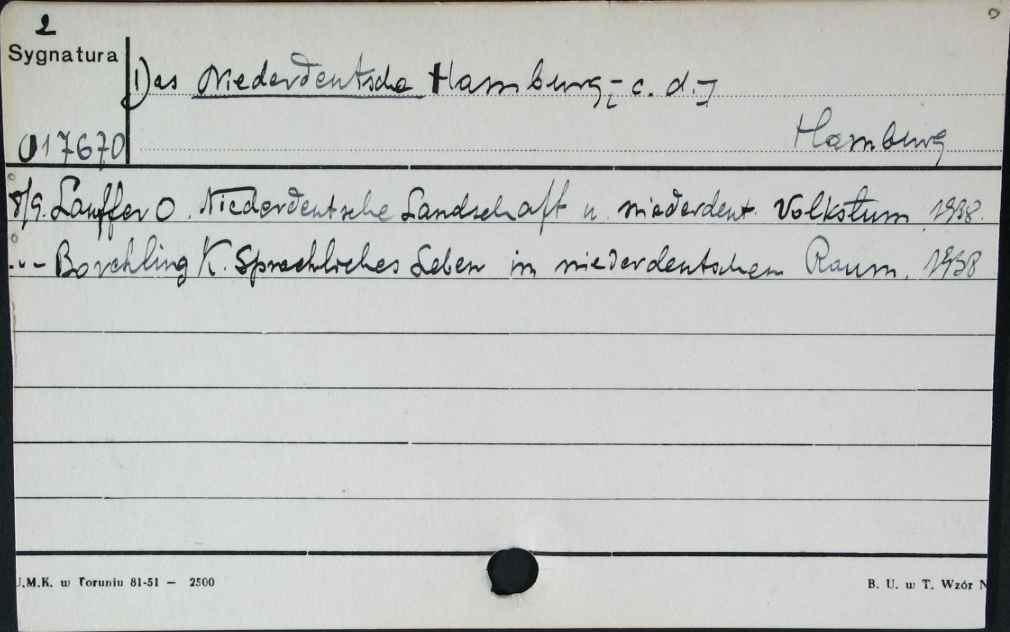 2
Sygnatura
Das Niederdeutsche Hamburg - c. d. -
017670
Hamburg
8/9. Lauffer O. Niederdeutsche Landschaft u. niederdeut. Volkstum, 1938.
.,. - Borchling K. Sprachliches Leben im niederdeutschem Raum. 1938
U.M.K. w Toruniu 81-51 — 2500
B. U. w T. Wzór N